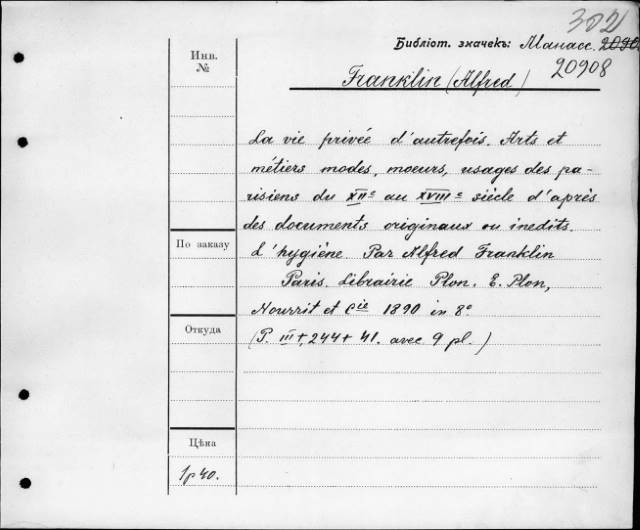 302
Библіот. значекъ: Манасс. 2090
20908
Franklin (Alfred)
Инв.
№
La vie privée d'autrefois. Arts et
métiers modes, moeurs, usages des pa-
risiens du XIIe au XVIIIe siècle d'après
des documents originaux ou inedits.
L'hygiène. Par Alfred Franklin
Paris. Librairie Plon. E. Plon,
Nourrit et Cie 1890 in 8°
(P. III+, 244+ 41. avec 9 pl.)
По заказу
Откуда
Цѣна
1р40.